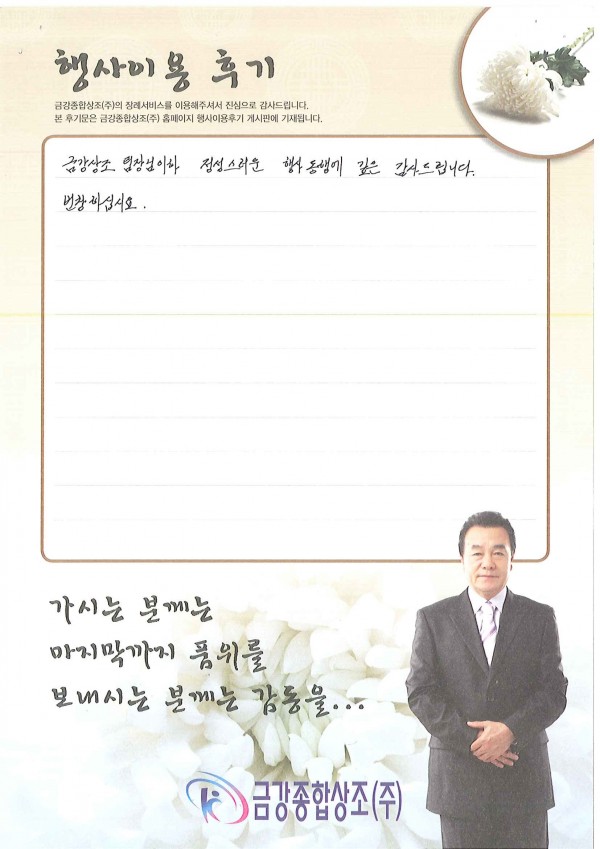 행사이용 후기
금강종합상조(주)의 장례서비스를 이용해주셔서 진심으로 감사드립니다.
본 후기문은 금강종합상조(주) 홈페이지 행사이용후기 게시판에 기재됩니다.
금강상조 팀장님이하 정성스러운 행사동행에 깊은 감사드립니다.
번창하십시요.
가시는 분께는
마지막까지 품위를
보내시는 분께는 감동을...
금강종합상조(주)